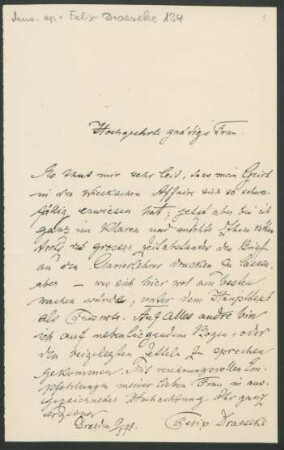 Mus. ep. Felix Draeseke 134
Hochgeehrte gnädige Frau.
Es thut mir sehr leid, dass mein Geist
in der Affaire sich so schwer-
fällig erwiesen hat; jetzt aber bin ich
ganz im Klaren und möchte Ihren
trotz des grossen Zeitabstandes den Brief
an den Clavierlehrer drucken zu lassen,
aber — wie sich hier wol am besten
machen würde, unter dem Haupttext
als Auf alles andre bin
ich auf nebenliegendem Bogen, oder
den beigelegten Zetteln zu sprechen
gekommen. Mit verehrungsvollen Em-
pfehlungen meiner lieben Frau in aus-
gezeichneter Hochachtung Ihr ganz
ergebener
Dresden Felix Draeseke